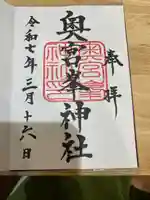 奉拝
奥宮峯神社
令和七年三月十六日